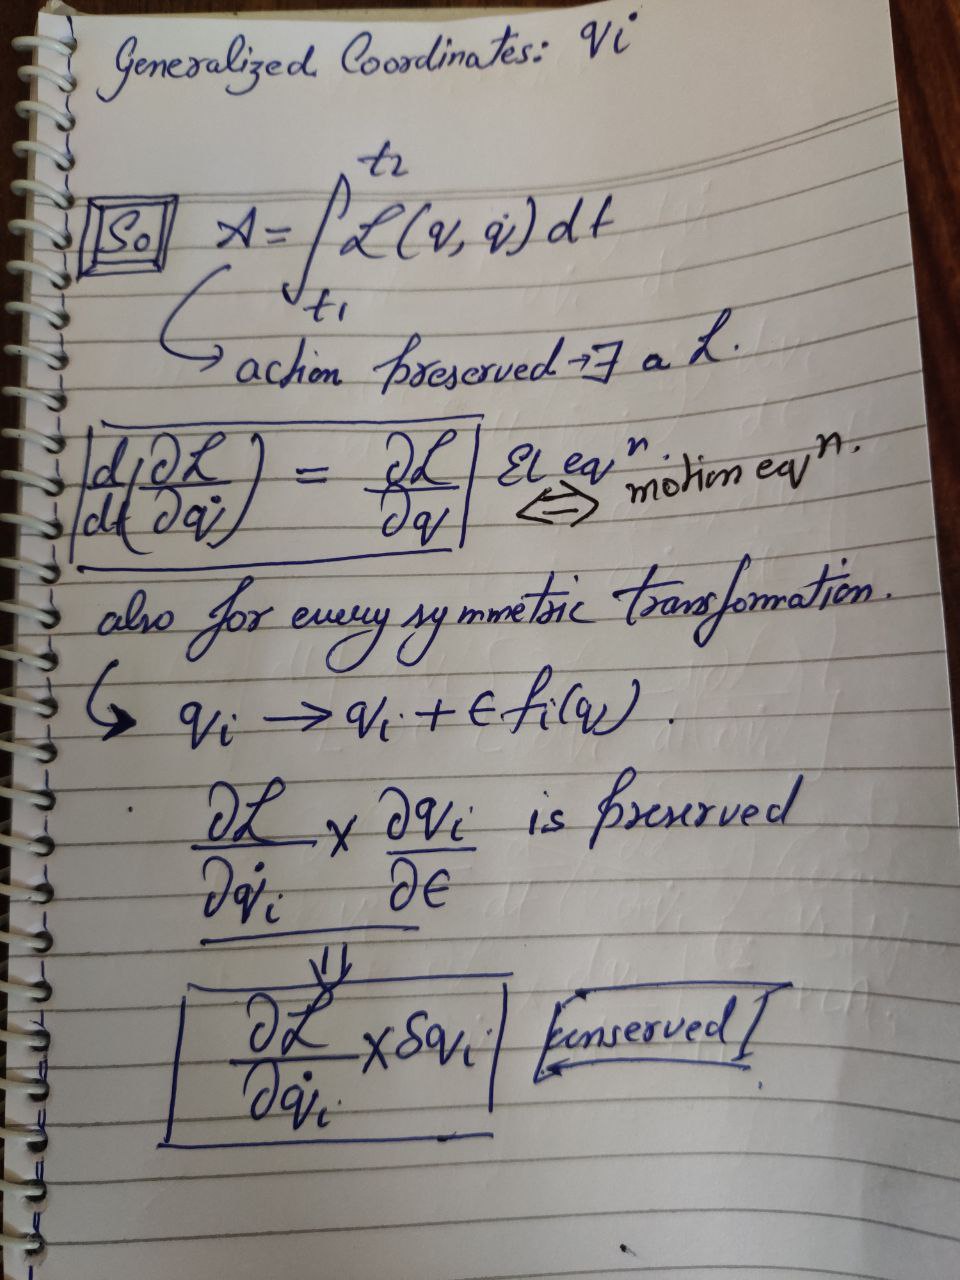 Generalized Coordinates: qi
So A = ∫_{t1}^{t2} ℒ(q, q̇) dt
action preserved → ∃ a ℒ.
d/dt (∂ℒ/∂q̇) = ∂ℒ/∂q EL eqⁿ. ⟺ motion eqⁿ.
also for every symmetric transformation.
↳ qi → qi + ϵ fi(q).
∂ℒ/∂q̇i × ∂qi/∂ϵ is preserved
⇓
∂ℒ/∂q̇i × δqi conserved